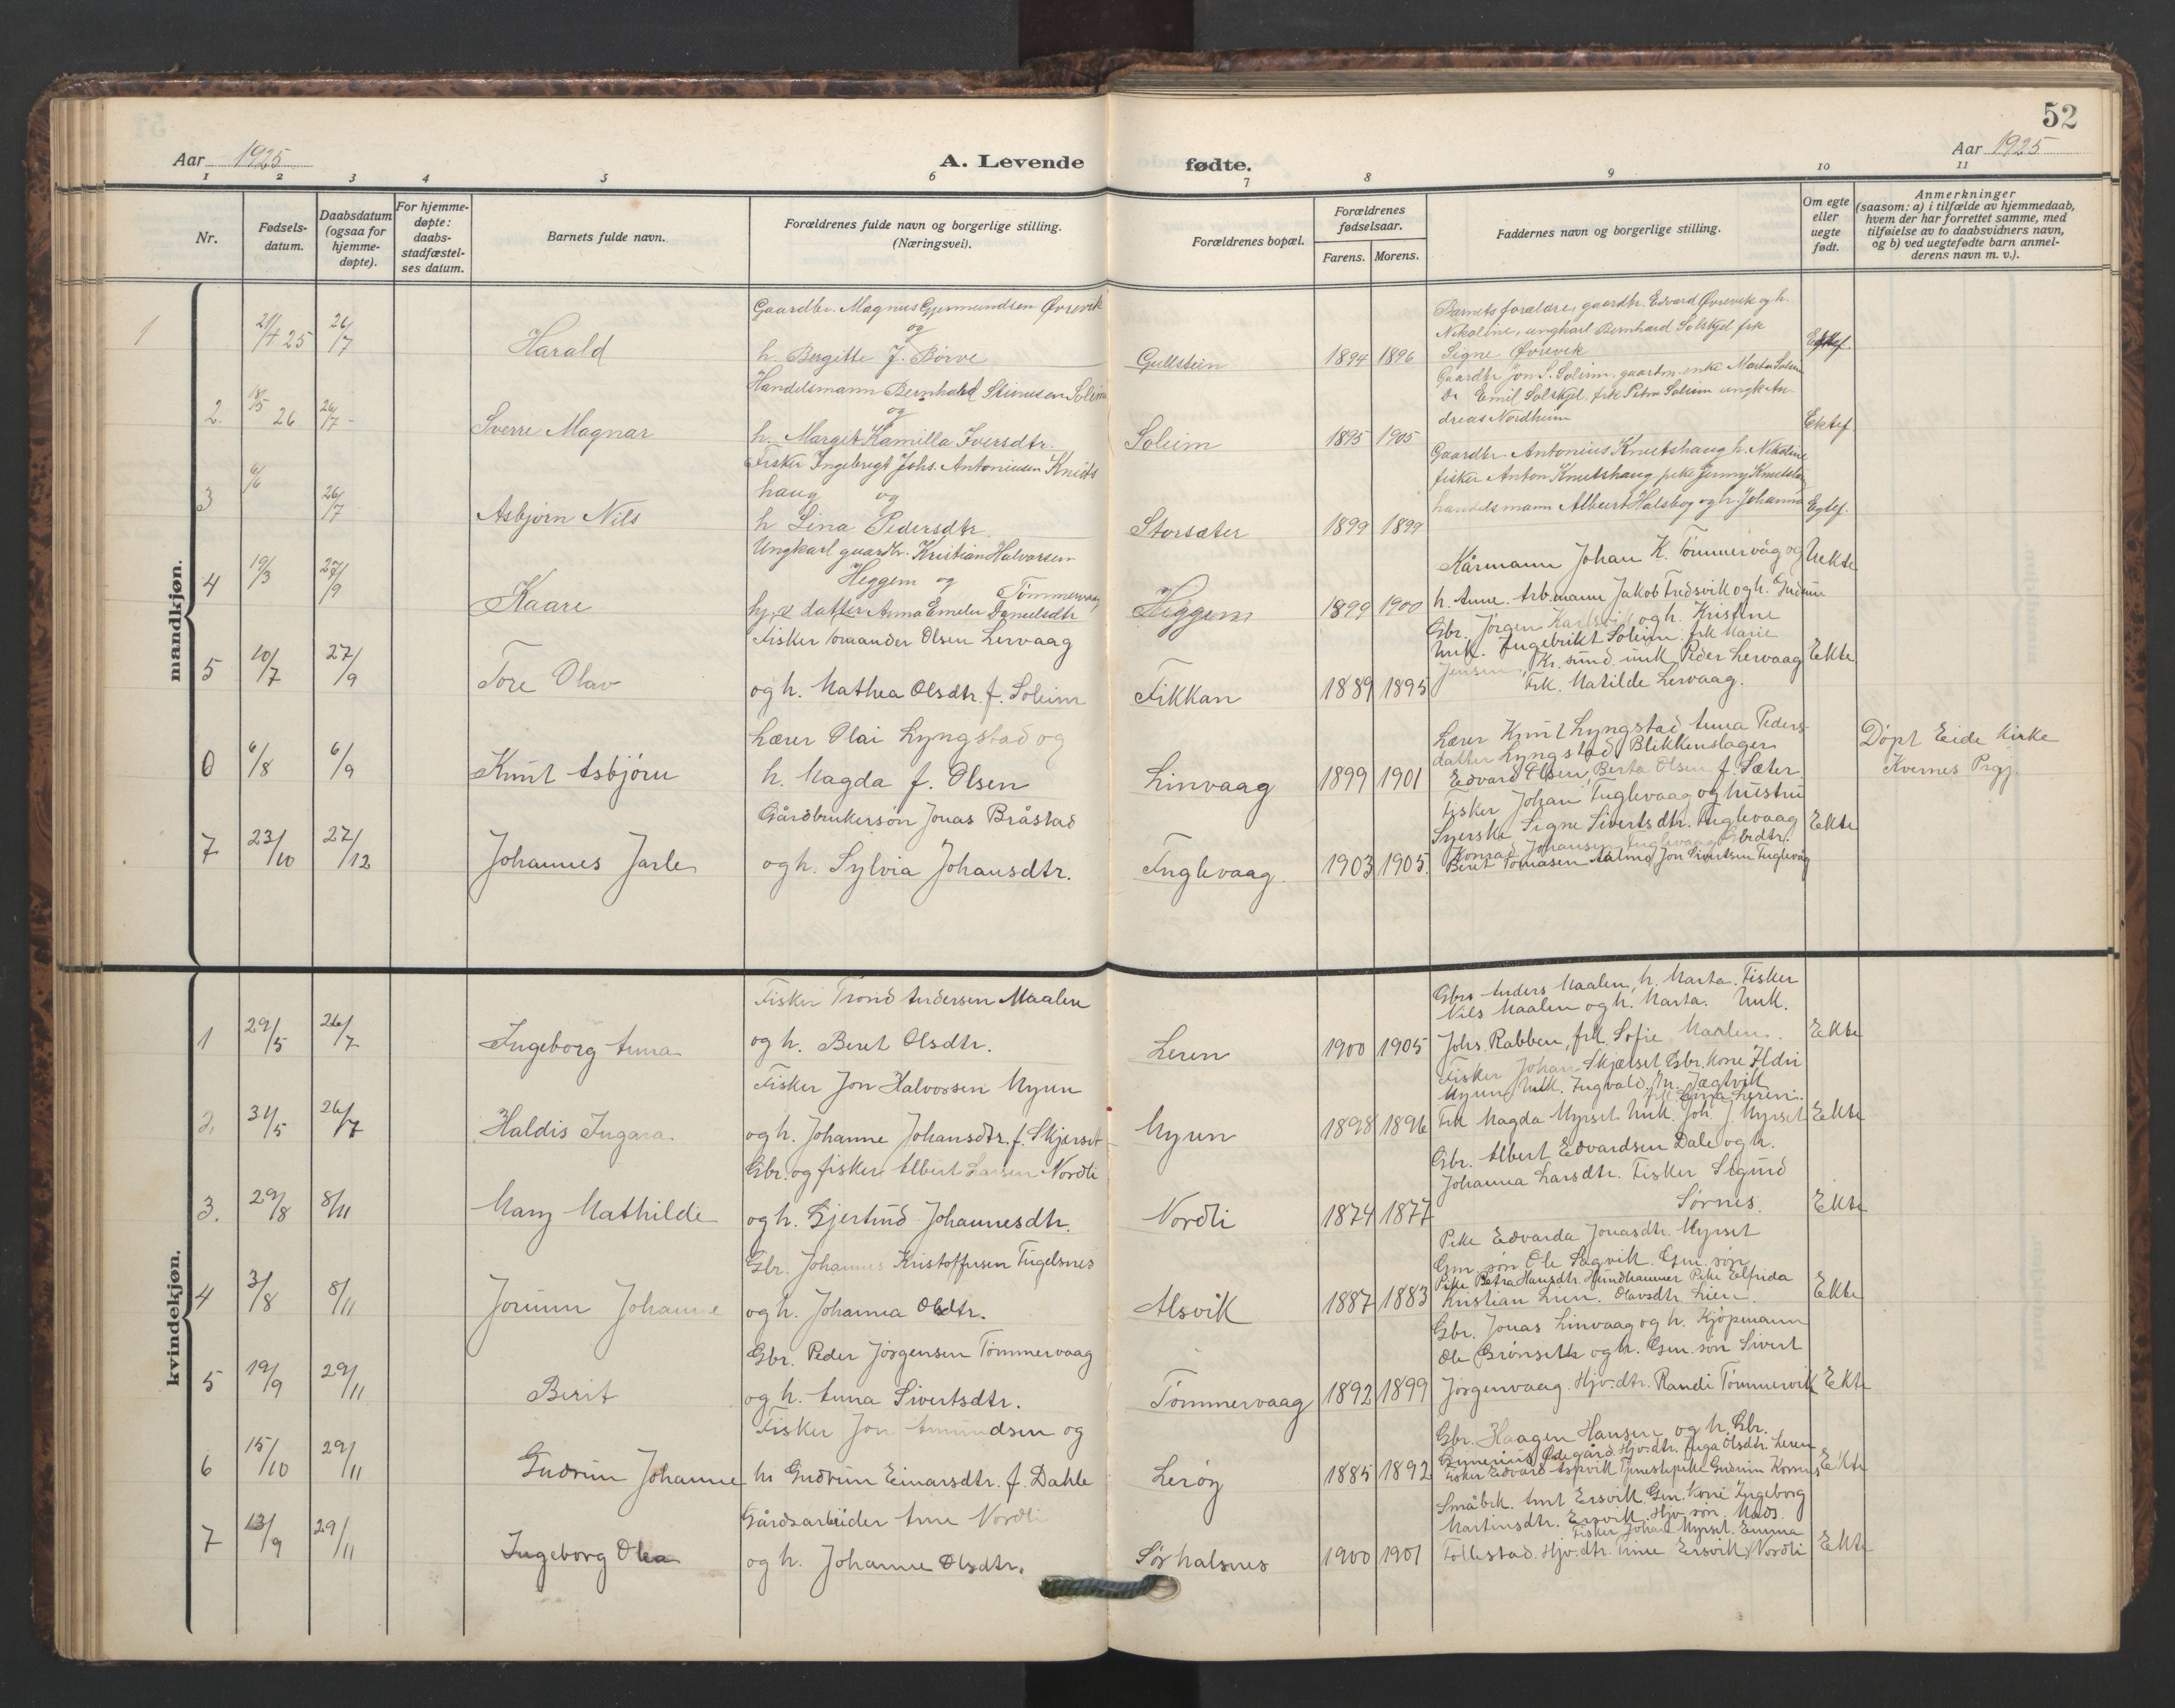 52
Aar 1925
A. Levende fødte.
Aar 1925
1 2 3 4 5 6 7 8 9 10 11
Nr.
Fødsels-
datum.
Daabsdatum
(ogsaa for
hjemme-
døpte).
For hjemme-
døpte:
daabs-
stadfæstel-
ses datum.
Barnets fulde navn.
Forældrenes fulde navn og borgerlige stilling.
(Næringsvei).
Forældrenes bopæl.
Forældrenes
fødselsaar.
Farens. Morens.
Faddernes navn og borgerlige stilling.
Om egte
eller
uegte
født.
Anmerkninger
(saasom: a) i tilfælde av hjemmedaab,
hvem der har forrettet samme, med
tilføielse av to daabsvidners navn,
og b) ved uegtefødte barn anmel-
derens navn m. v.).
mandkjøn.
1 25 26/7 Harald
Gaardbr. Magnus Gjermundsen Øvrevik
og
h. Bergitte J. Børve
Gullstein 1894 1896
Barnets forældre, gaardbr. Edvard Øvrevik og h.
Nikoline, ungkarl Bernhard Solskjel frk
Signe Øvrevik
Egtef.
2. 18/5 26 26/7 - Sverre Magnar
Handelsmann Bernhard Stinusen Soleim
og
h. Margit Kamilla Iversdtr.
Soleim 1895 1905
Gaardbr Jon S. Soleim, gaardm. enke Marta Soleim
Emil Solskjel, frk Petra Soleim ungk An-
dreas Nordheim
Ektef
3 6/6 26/7 Asbjørn Nils
Fisker Ingebregt Johs. Antoniusen Knuts
haug og
h Lina Pedersdtr.
Storsæter 1899 1899
Gaardbr. Antonius Knutshaug h. Nikoline
fisker Anton Knutshaug pike Jenny Knutshaug
handelsmann Albert Halsbog og h. Johanna
Egtef.
4 19/3 27/9 Kaare
Ungkarl gaardbr. Kristian Halvorsen
Heggem og Tømmervaag
hj.v. datter Anna Emelie Danielsdtr
Heggem 1899 1900
Kårmann Johan K. Tømmervåg og
h. Anne. Arb.mann Jakob Fredsvik og h. Gudrun
Gbr. Jørgen Karlsvik og h. Kristine
Uekte
5 10/7 27/9 Tore Olav
Fisker Olsen Lervaag
og h. Mathea Olsdtr. f. Soleim
Fikkan 1889 1895
Unk. Ingebrikt Soleim. frk Marie
Jensen, Kr.sund. unk. Peder Lervaag
Frk. Matilde Lervaag.
Ekte
6 6/8 6/9 Knut Asbjørn
Lærer Olai Lyngstad og
h. Magda f. Olsen
Linvaag 1899 1901
Lærer Knut Lyngstad Anna Peders
datter Lyngstad Blikkenslager
Edvard Olsen, Berta Olsen f. Sæter.
Døpt Eide kirke
Kvernes Prgj.
7 23/10 27/12 Johannes Jarle
Gårdbrukersøn Jonas Bråstad
og h. Sylvia Johansdtr.
Fuglevaag. 1903 1905.
Fisker Johan Fuglevaag og hustru
Syerske Signe Sivertsdtr. Fuglevaag
Konrad Johansen Fuglevaag Gbrdtr.
Beret Tomasen Aalmo, Jon Sivertsen Fuglevåg
Ekte
kvindekjøn.
1 29/5 26/7 Ingeborg Anna
Fisker Trond Andersen Maalen
og h. Beret Olsdtr.
Leren 1900 1905
Gbr. Anders Maalen, h. Marta. Fisker
Nils Maalen og h. Marta. Unk.
Johs. Rabben, frk. Sofie Maalen.
Ekte
2. 31/5 26/7 Haldis Ingara
Fisker Jon Halvorsen Myren
og h. Johanne Johansdtr. f. Skjerset
Myren 1898 1896
Fisker Johan Skjælset Gbr. kone Ildri
Myren Unk. Ingvald Jægtvik
frk. Anna Leren.
Frk Magda Myrset Unk. Joh. J Myrset
Ekte
3. 29/8 8/11 Mary Mathilde
Gbr. og fisker Albert Larsen Nordli
og h. Gjertrud Johannesdtr.
Nordli 1874 1877
Gbr. Albert Edvardsen Dale og h.
Johanna Larsdtr. Fisker Sigurd
Sørnes.
Ekte
4 3/8 8/11 Jorunn Johanne
Gbr. Johannes Kristoffersen Fugelsnes
og h. Johanna Olsdtr.
Alsvik 1887 1883
Pike Edvarda Jonasdtr. Myrset
Gm. søn Ole Sagvik. Gm. søn
Pike Petra Hansdtr. Hundhammer Pike Elfrida
Kristian Leren. Olavsdtr. Lien.
Ekte
5 19/9 29/11 Berit
Gbr. Peder Jørgensen Tømmervaag
og h. Anna Sivertsdtr.
Tømmervaag 1892 1899
Gbr. Jonas Linvaag og h. Kjøpmann
Ole Grønseth og h. Gm. søn Sivert
Jørgenvaag. Hjv. dtr. Randi Tømmervik
Ekte
6 15/10 29/11 Gudrun Johanne
Fisker Jon Amundsen og
h. Gudrun Einarsdtr. f. Dahle
Lerøy 1885 1892
Gbr. Haagen Hansen og h. Gbr.
Gunerius Ødegård. Hjv. dtr. Inga Olsdtr. Leren
Fisker Edvard Aspvik Tjenestepike Gudrun Korsnes
Ekte
7 13/9 29/11 Ingeborg Olea
Gårdsarbeider Arne Nordli
og h. Johanne Olsdtr.
Sørhalsnes 1900 1901
Småbrk. Amt Ersvik. Gm. kone Ingeborg
Martinsdtr. Ersvik. Hjv. søn. Mads.
Fisker Johan Myrset. Emma
Tollestad. Hjv. dtr. Trine Ersvik Nordli
Ekte